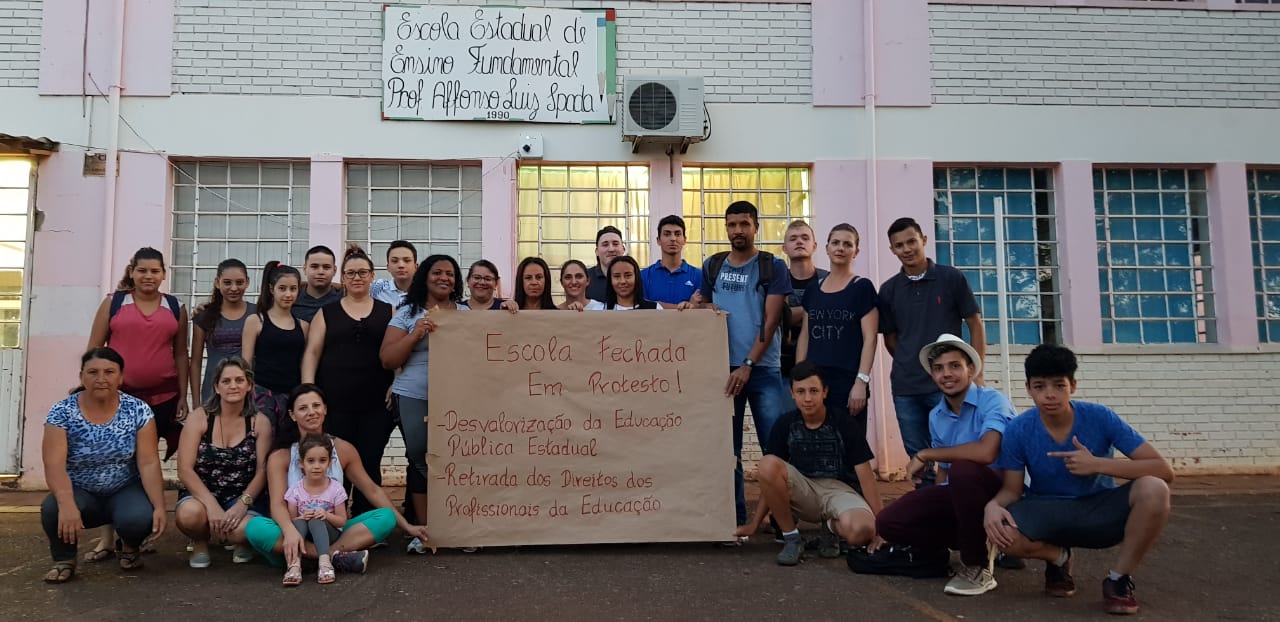 Escola Estadual de
Ensino Fundamental
Prof Affonso Luis Spada
1990
Escola Fechada
Em Protesto!
-Desvalorização da Educação
Pública Estadual
-Retirada dos Direitos dos
Profissionais da Educação
PRESENT
FUTURE
NEW YORK
CITY